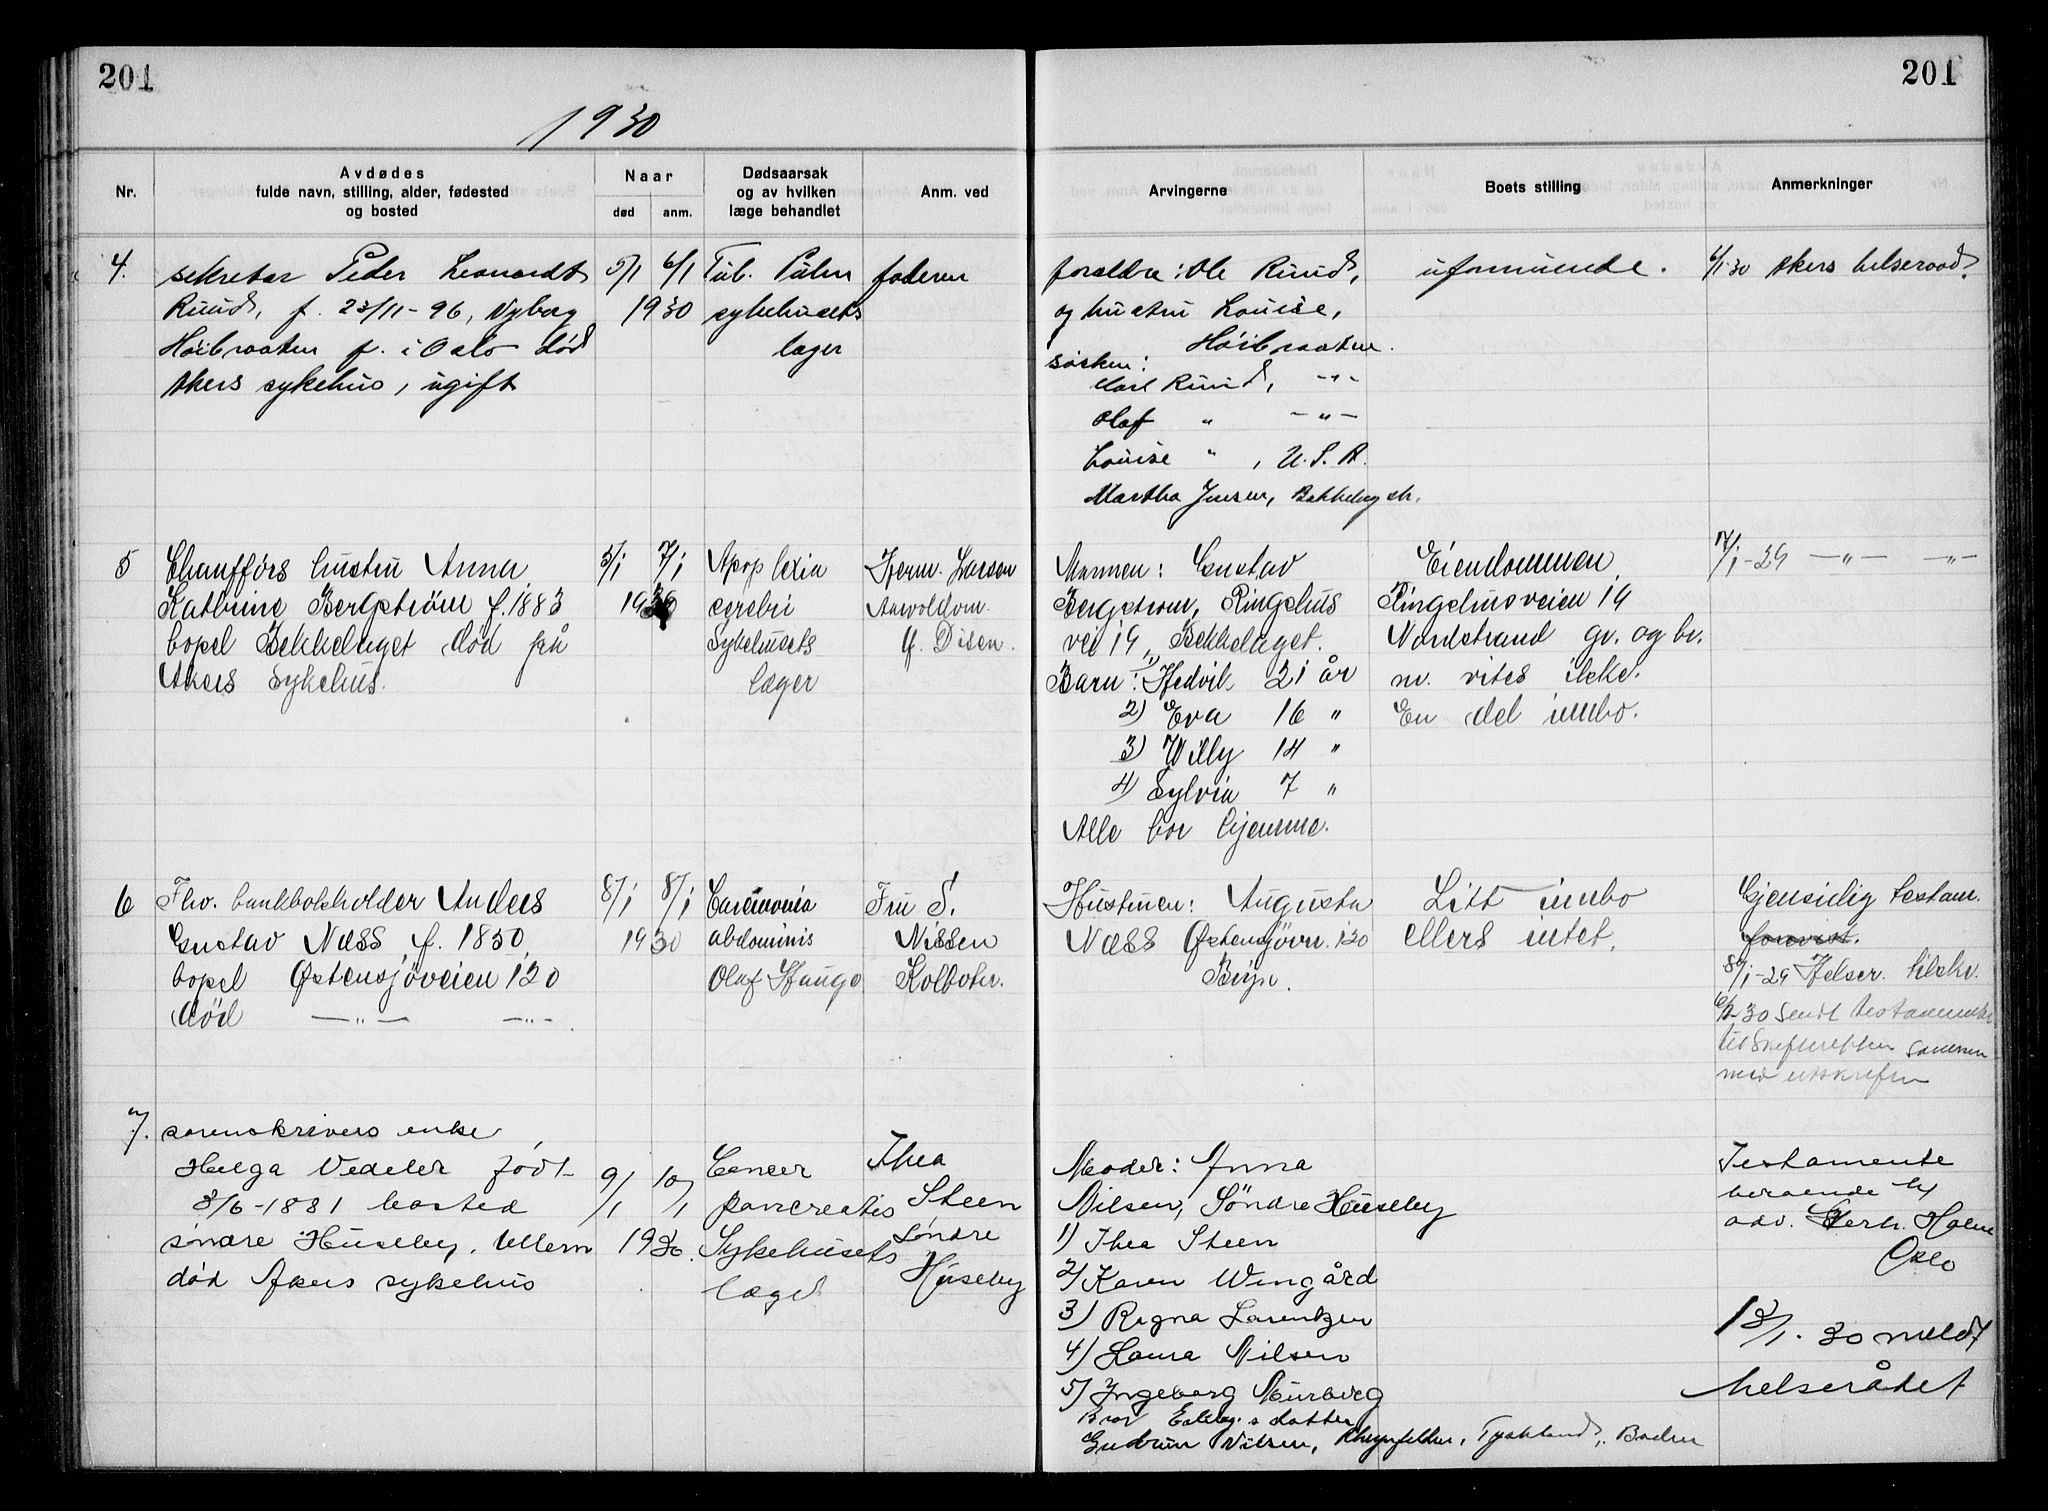 201
201
1930
Nr.
Avdødes
fulde navn, stilling, alder, fødested
og bosted
Naar
død
anm.
Dødsaarsak
og av hvilken
læge behandlet
Anm. ved
Arvingerne
Boets stilling
Anmerkninger
4.
sekretær Peder Leonardt
Ruud, f. 23/11-96, Nyborg
Høibraaten f. i Oslo død
Akers sykehus, ugift
5/1 6/1
1930
Tub. Pulm
sykehusets
læger
faderen
forældre: Ole Ruud,
og hustru Louise,
Høibraaten.
søsken:
Karl Ruud, -"-
Olaf " -"-
Louise " , U.S.A.
Martha Jensen, Bakkehug
uformuende.
6/1-30 Akers helseraad.
5
Chaufførs hustru Anna
Kathrine Bergstrøm f. 1883
bopel Bekkelaget død på
Akers Sykehus.
5/1 7/1
1930
Apoplexia
cerebri
Sykehusets
læger
Herm. Larsen
Arvoldom.
Gr. Disen.
Mannen: Gustav
Bergstrøm, Ringshus
vei 19, Bekkelaget.
Barn: 1) Hedvik 21 år
2) Eva 16 "
3) Willy 14 "
4) Sylvia 7 "
Alle bor hjemme.
Eiendommen
Ringshusveien 19
Nordstrand gr. og br.
nr. vites ikke.
En del innbo.
7/1-29 -"- -"-
6
Fhv. bankbokholder Anders
Gustav Næss, f. 1850,
bopel Østensjøveien 120
død -"- -"-.
8/1 8/1
1930
Carcinoma
abdominis
Olaf Hauge
Fru S.
Nissen
Kolbotn.
Hustruen: Augusta
Næss Østensjøvn. 120
Bryn.
Litt innbo
ellers intet.
Gjensidig testam.
forevist.
8/1-29 Helser. tilskr.
6/2-30 Sendt testamentet
til Skifteretten sammen
med utskriften
7.
sorenskrivers enke
Helga Vedeler født
3/6-1881 bosted
søndre Huseby, Ullern
død Akers sykehus
9/1 10/1
1930.
Cancer
pancreatis
Sykehusets
læge
Thea
Steen
Søndre
Huseby
Moder: Anna
Nilsen, Søndre Huseby
1) Thea Steen
2) Karen Wingård
3) Ragna Lorentzen
4) Laura Nilsen
5) Ingeborg Murberg
Bror datter
Gudrun Nilsen, Rheinfelden, Tyskland, Baden
Testamente
beroende hos
adv. Gerh. Holm
Oslo
13/1-30 meldt
helserådet